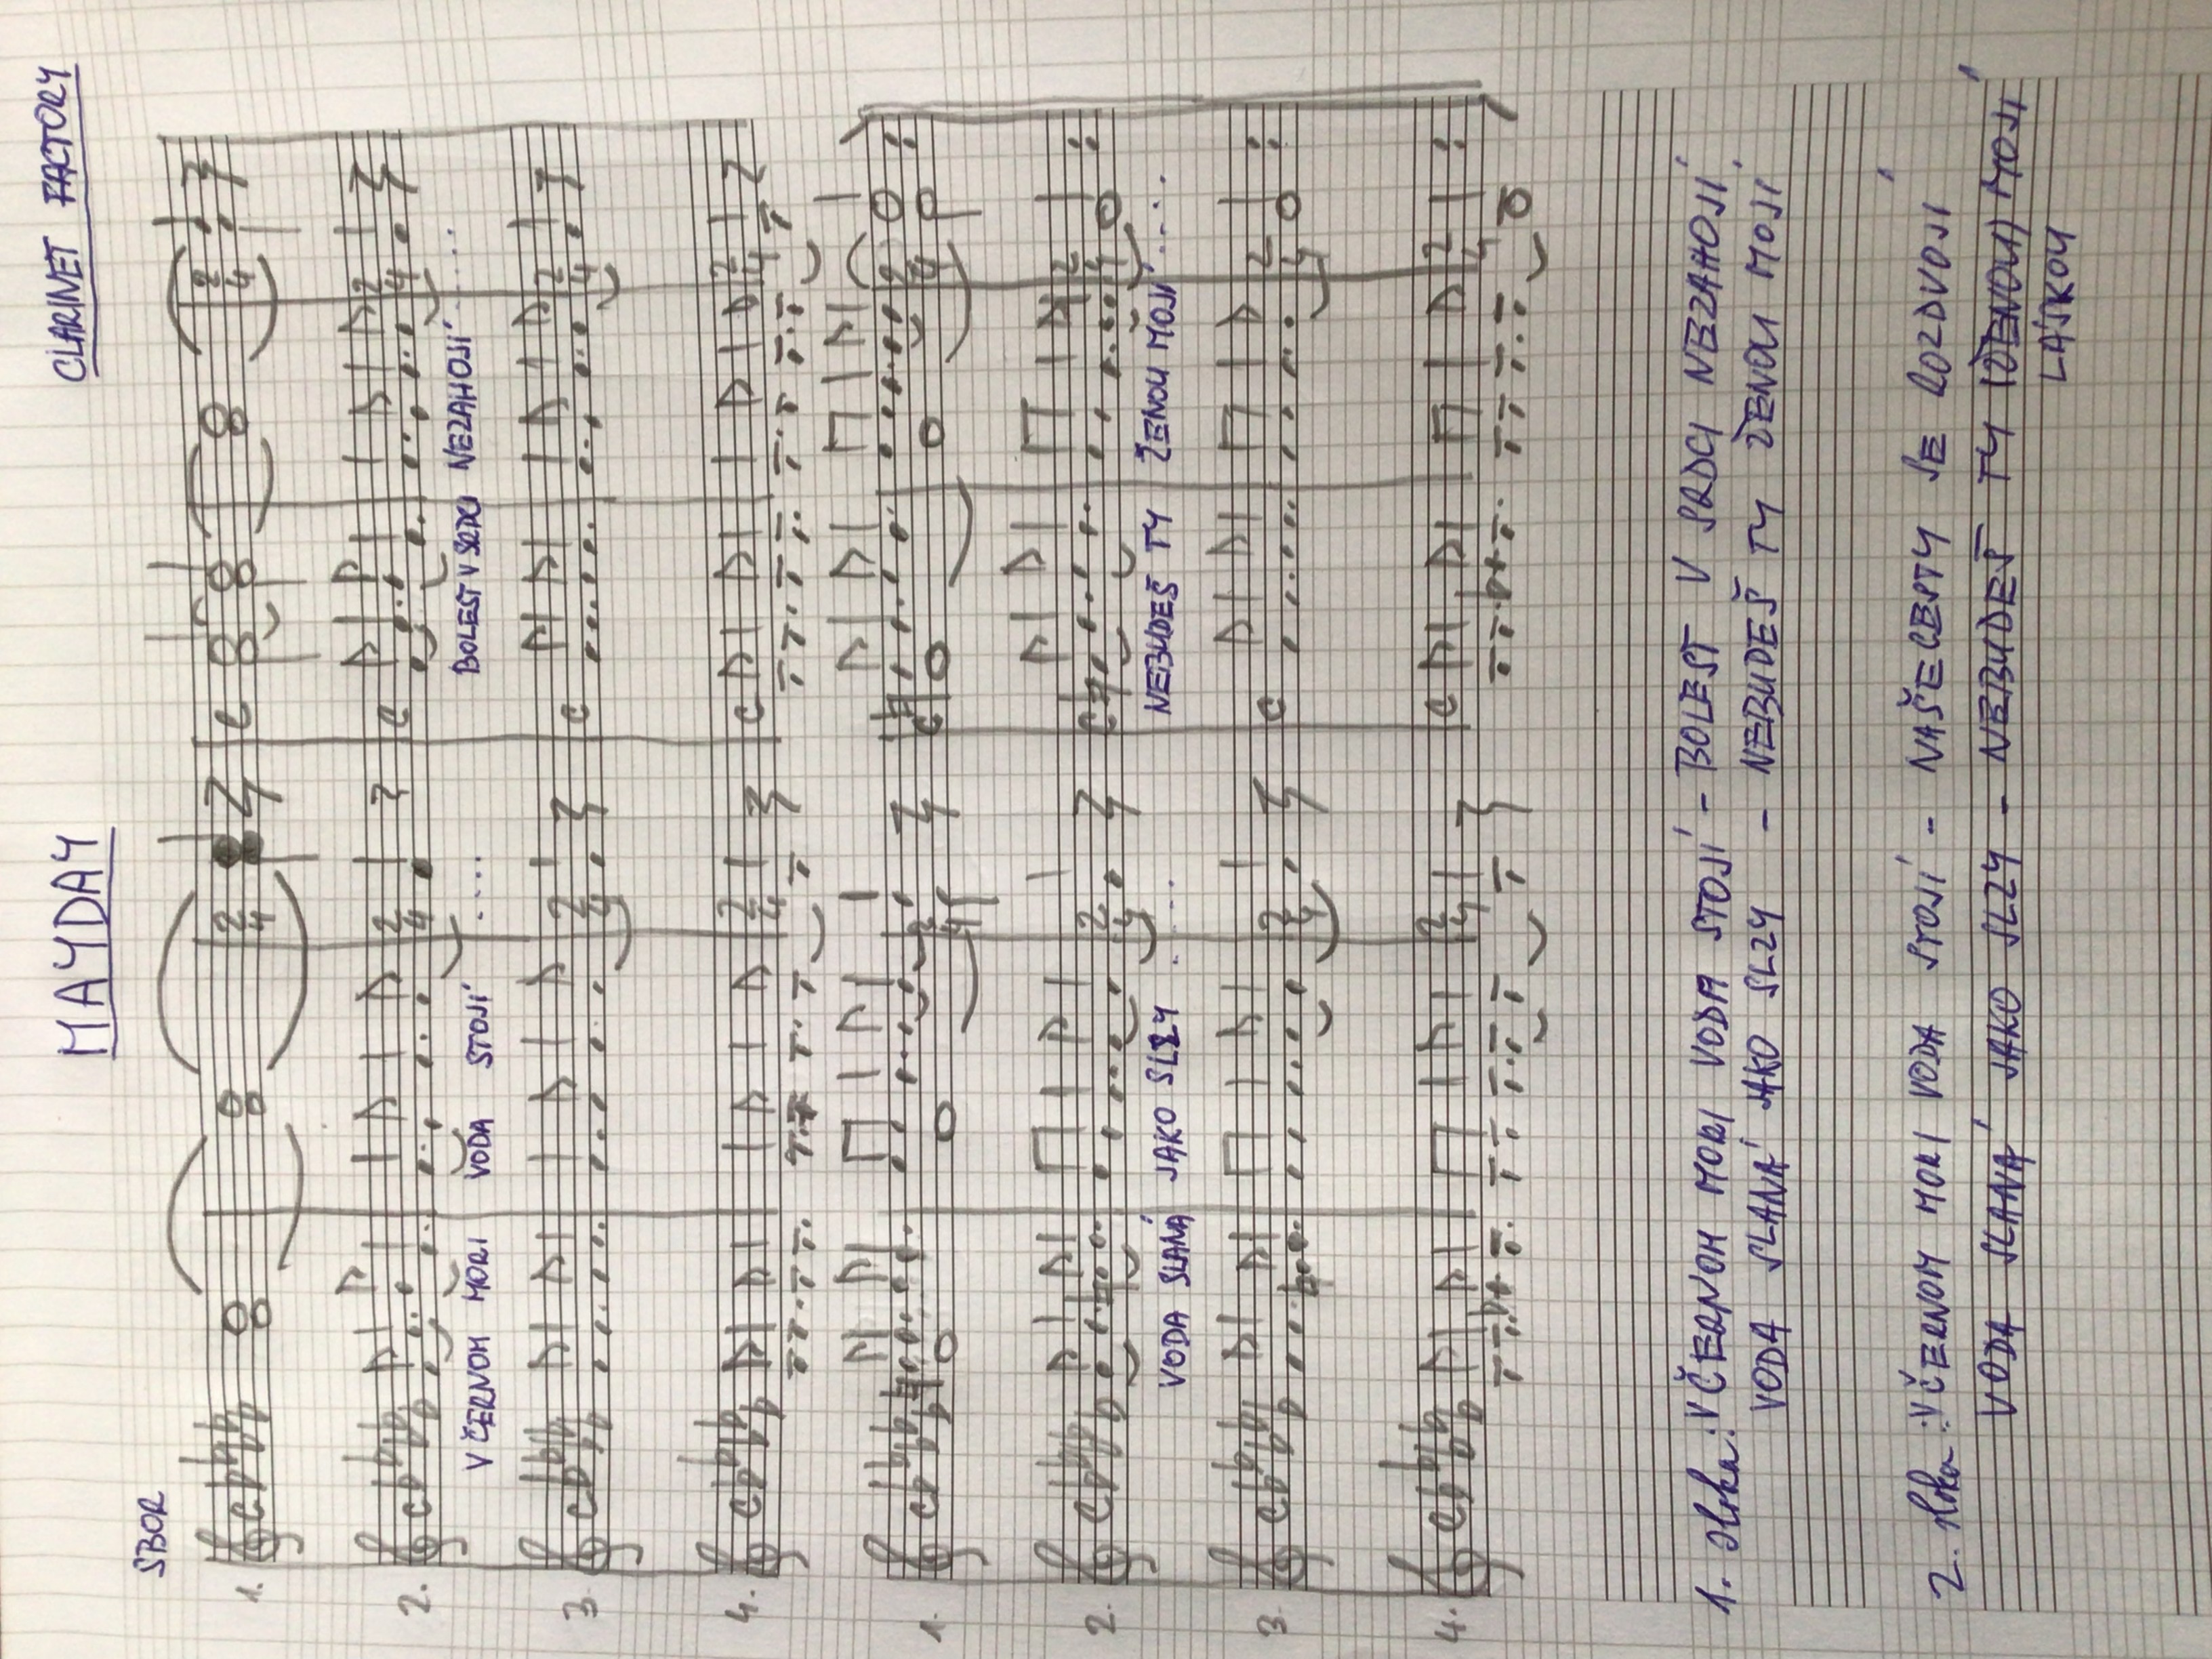 MAYDAY CLARINET FACTORY
SBOR
1.
2.
V ČERNOM MORI VODA STOJÍ .... BOLEST V SRDCI NEZAHOJÍ ....
3
4.
1.
2.
VODA SLANÁ JAKO SLZY .... NEBUDEŠ TY ŽENOU MOJÍ ....
3
4.
1. sloka: V ČERNOM MORI VODA STOJÍ - BOLEST V SRDCI NEZAHOJÍ
VODA SLANÁ JAKO SLZY - NEBUDEŠ TY ŽENOU MOJÍ
2. sloka: V ČERNOM MORI VODA STOJÍ - NAŠE CESTY SE ROZDVOJÍ
VODA SLANÁ JAKO SLZY - NEBUDEŠ TY (ŽENOU) MOJÍ
LÁSKOU